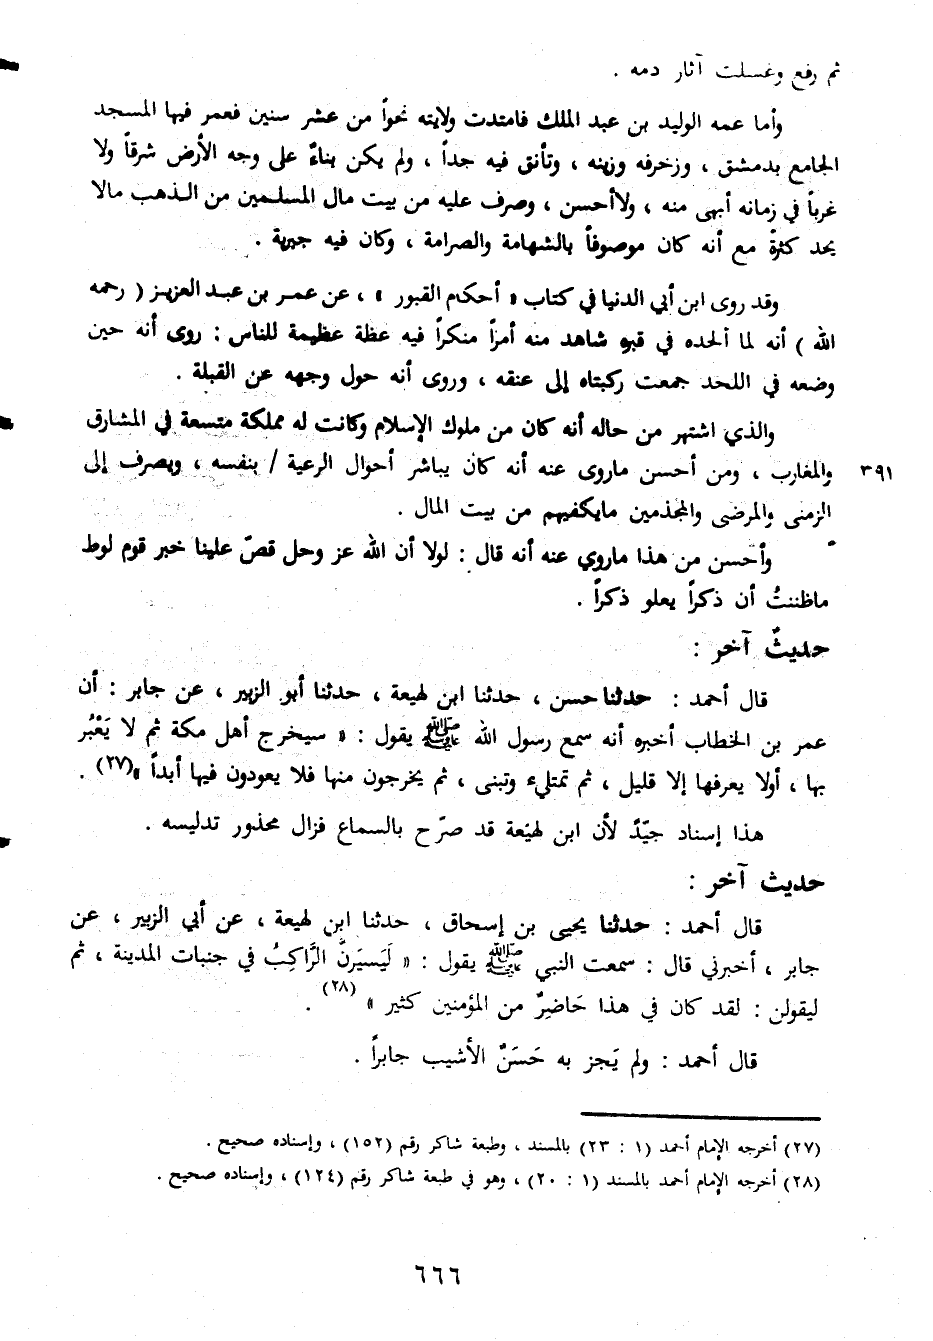 ثم رفع وغسلت آثار دمه .
وأما عمه الوليد بن عبد الملك فامتدت ولايته نحواً من عشر سنين فعمر فيها المسجد
الجامع بدمشق ، وزخرفه وزينه ، وتأنق فيه جداً ، ولم يكن بناءٌ على وجه الأرض شرقاً ولا
غرباً في زمانه أبهى منه ، ولاأحسن ، وصرف عليه من بيت مال المسلمين من الذهب مالا
يحد كثرةً مع أنه كان موصوفاً بالشهامة والصرامة ، وكان فيه جبرية .
وقد روى ابن أبي الدنيا في كتاب « أحكام القبور » ، عن عمر بن عبد العزيز ( رحمه
الله ) أنه لما ألحده في قبره شاهد منه أمراً منكراً فيه عظة عظيمة للناس : روى أنه حين
وضعه في اللحد جمعت ركبتاه إلى عنقه ، وروى أنه حول وجهه عن القبلة .
والذي اشتهر من حاله أنه كان من ملوك الإسلام وكانت له مملكة متسعة في المشارق
والمغارب ، ومن أحسن ماروى عنه أنه كان يباشر أحوال الرعية / بنفسه ، ويصرف إلى ٣٩١
الزمنى والمرضى والمجذمين مايكفيهم من بيت المال .
وأحسن من هذا ماروي عنه أنه قال : لولا أن الله عز وجل قصّ علينا خبر قوم لوط
ماظننتُ أن ذكراً يعلو ذكراً .
حديثٌ آخر :
قال أحمد : حدثنا حسن ، حدثنا ابن لهيعة ، حدثنا أبو الزبير ، عن جابر : أن
عمر بن الخطاب أخبره أنه سمع رسول الله ﷺ يقول : « سيخرج أهل مكة ثم لا يَعْبُر
بها ، أولا يعرفها إلا قليل ، ثم تمتليء وتبنى ، ثم يخرجون منها فلا يعودون فيها أبداً »(٢٧) .
هذا إسناد جيّدً لأن ابن لهيَعة قد صرّح بالسماع فزال محذور تدليسه .
حديث آخر :
قال أحمد : حدثنا يحيى بن إسحاق ، حدثنا ابن لهيعة ، عن أبي الزبير ، عن
جابر ، أخبرني قال : سمعت النبي ﷺ يقول : « لَيَسيَرنَّ الرَّاكِبُ في جنبات المدينة ، ثم
ليقولن : لقد كان في هذا حَاضِرٌ من المؤمنين كثير » (٢٨) .
قال أحمد : ولم يَجز به حَسَنٌ الأشيب جابراً .
(٢٧) أخرجه الإمام أحمد (١ : ٢٣) بالمسند ، وطبعة شاكر رقم (١٥٢) ، وإسناده صحيح .
(٢٨) أخرجه الإمام أحمد بالمسند (١ : ٢٠) ، وهو في طبعة شاكر رقم (١٢٤) ، وإسناده صحيح .
٦٦٦